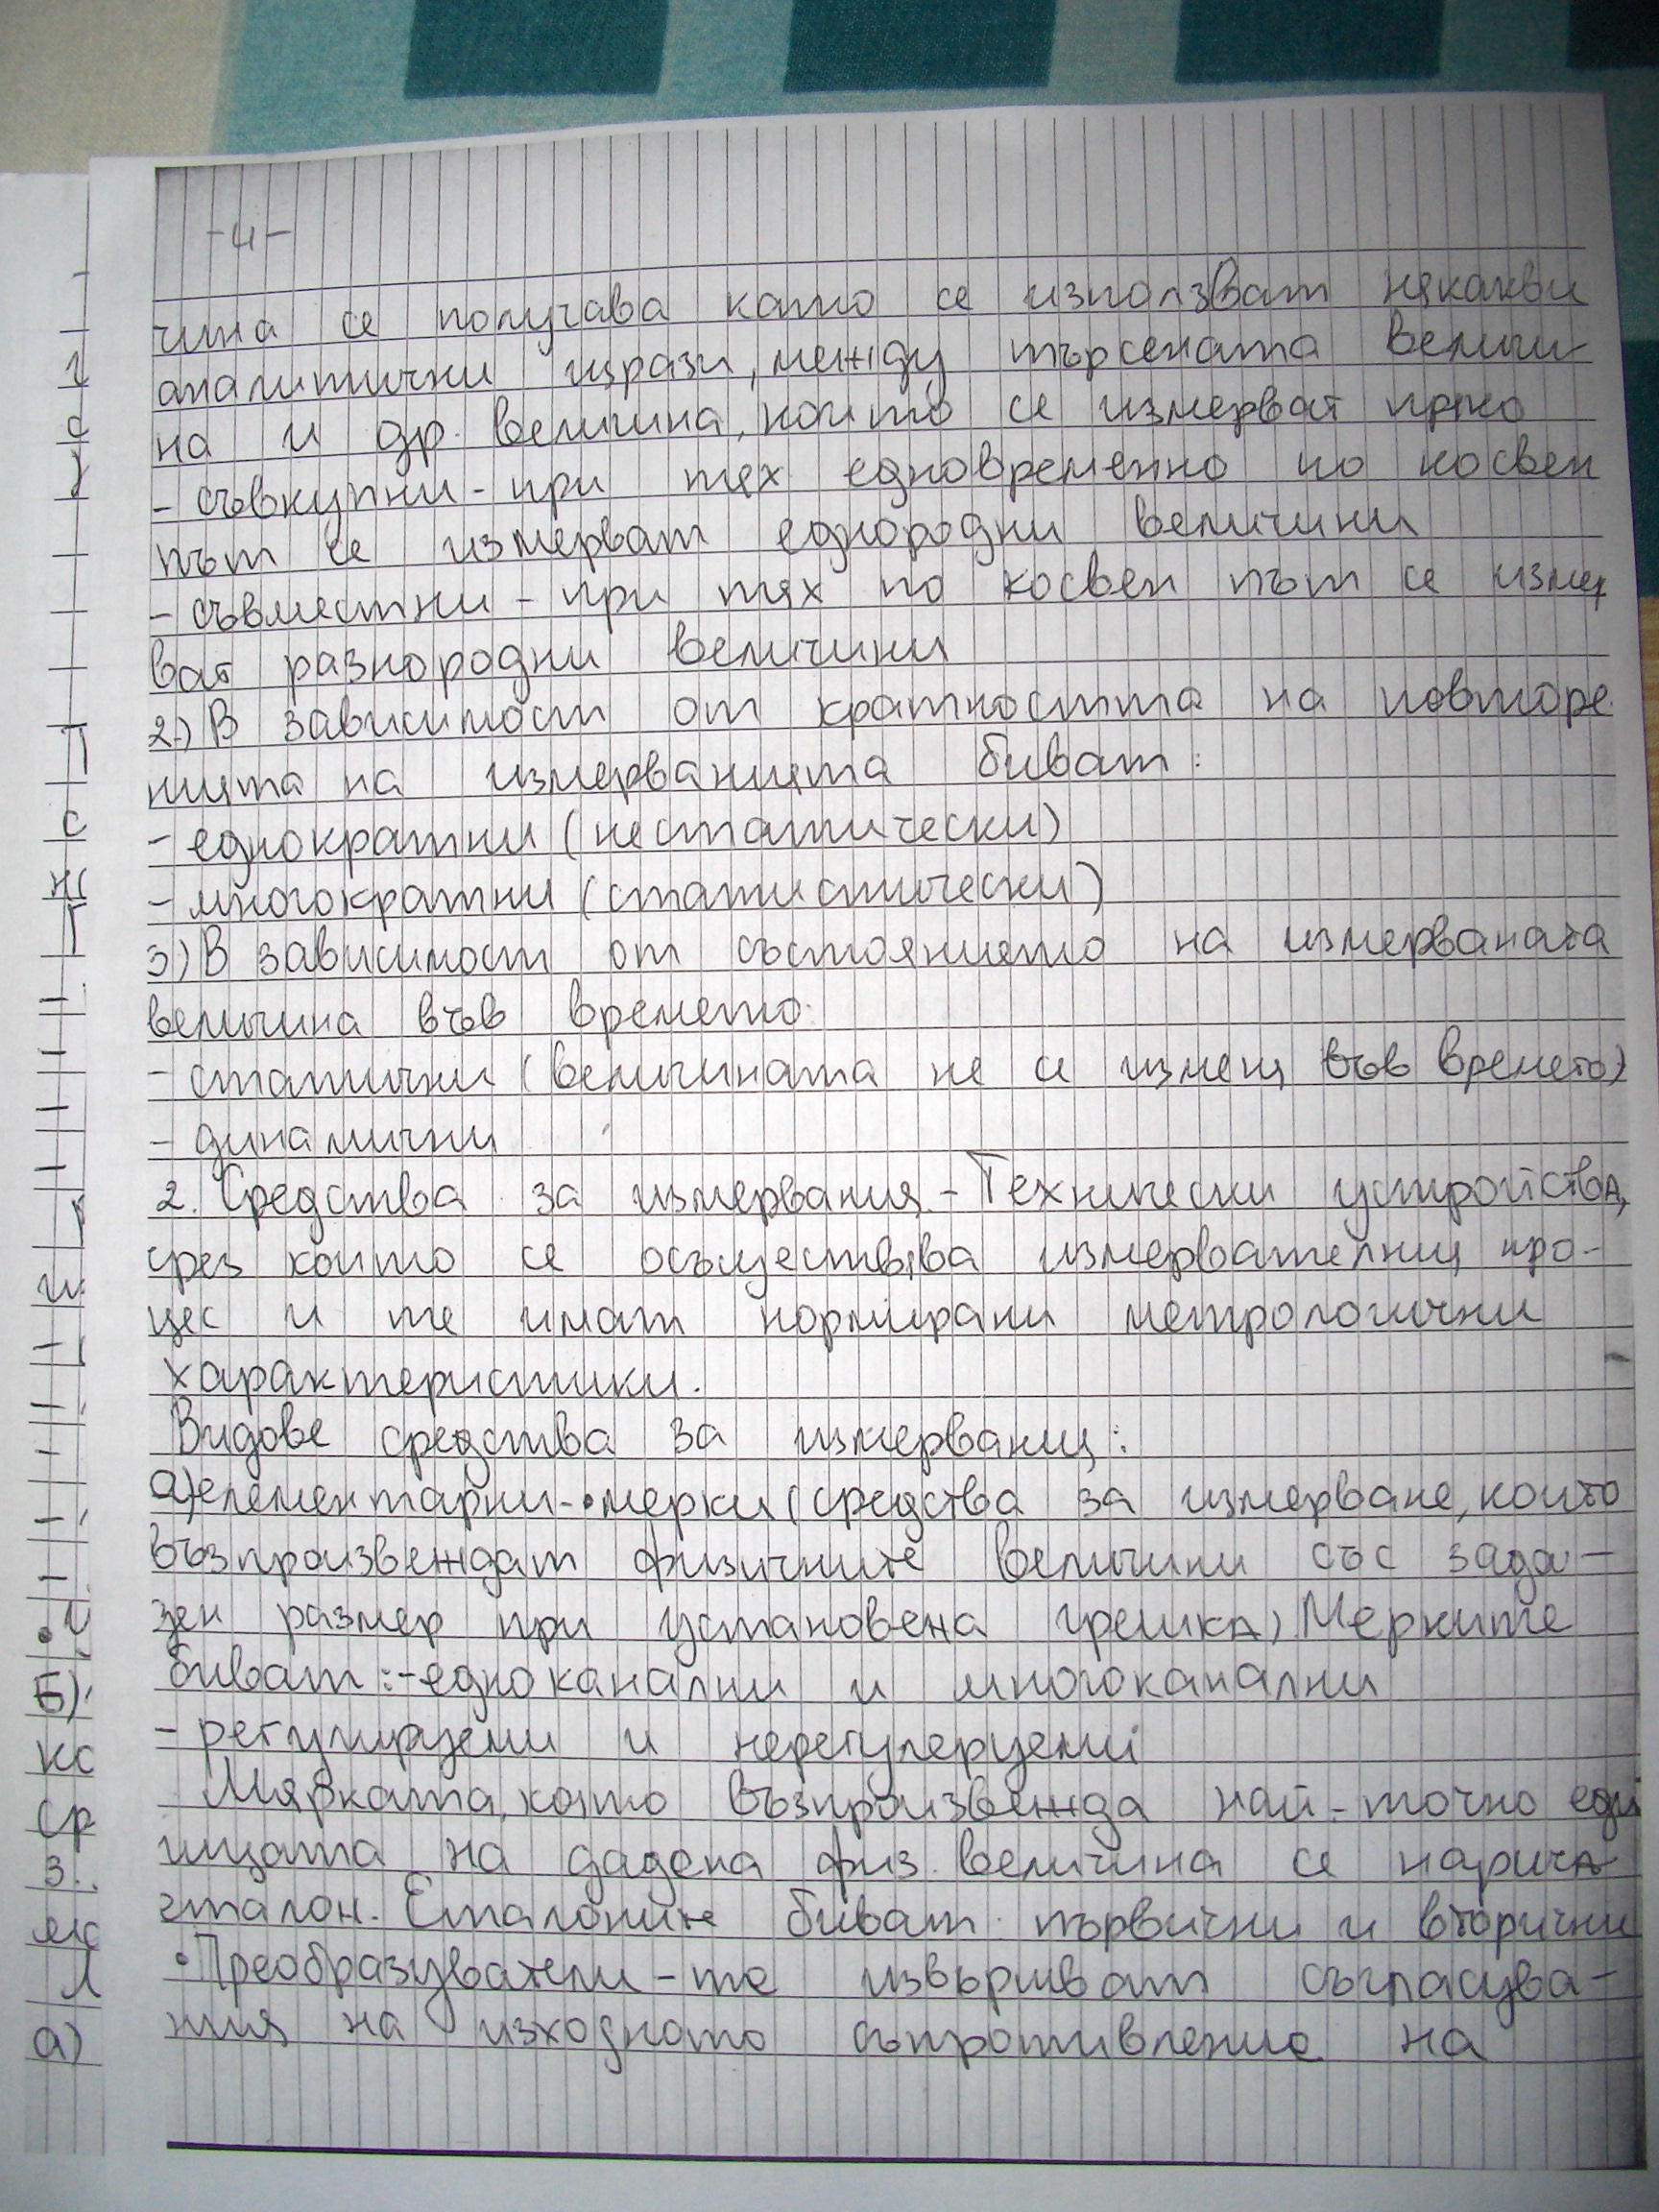 -4-
чина се получава като се използват някакви
аналитични изрази, между търсената величи-
на и др. величина, които се измерват пряко
- съвкупни - при тях едновременно по косвен
път се измерват еднородни величини
- съвместни - при тях по косвен път се измер
ват разнородни величини
2.) В зависимост от кратността на повторе
нията на измерванията биват:
- еднократни (нестатически)
- многократни (статистически)
3) В зависимост от състоянието на измерваната
величина във времето:
- статични (величината не се изменя във времето)
- динамични
2. Средства за измервания - Технически устройства,
чрез които се осъществява измервателния про-
цес и те имат нормирани метрологични
характеристики.
Видове средства за измервания:
а) елементарни - • мерки (средства за измерване, които
възпроизвеждат физичните величини със зада-
зен размер при установена грешка) Мерките
биват: - едноканални и многоканални
- регулируеми и нерегулеруеми
Мярката, която възпроизвежда най-точно еди
ницата на дадена физ. величина се нарича
еталон. Еталоните биват първични и вторични
• Преобразуватели - те извършват съгласува-
ния на изходното съпротивление на